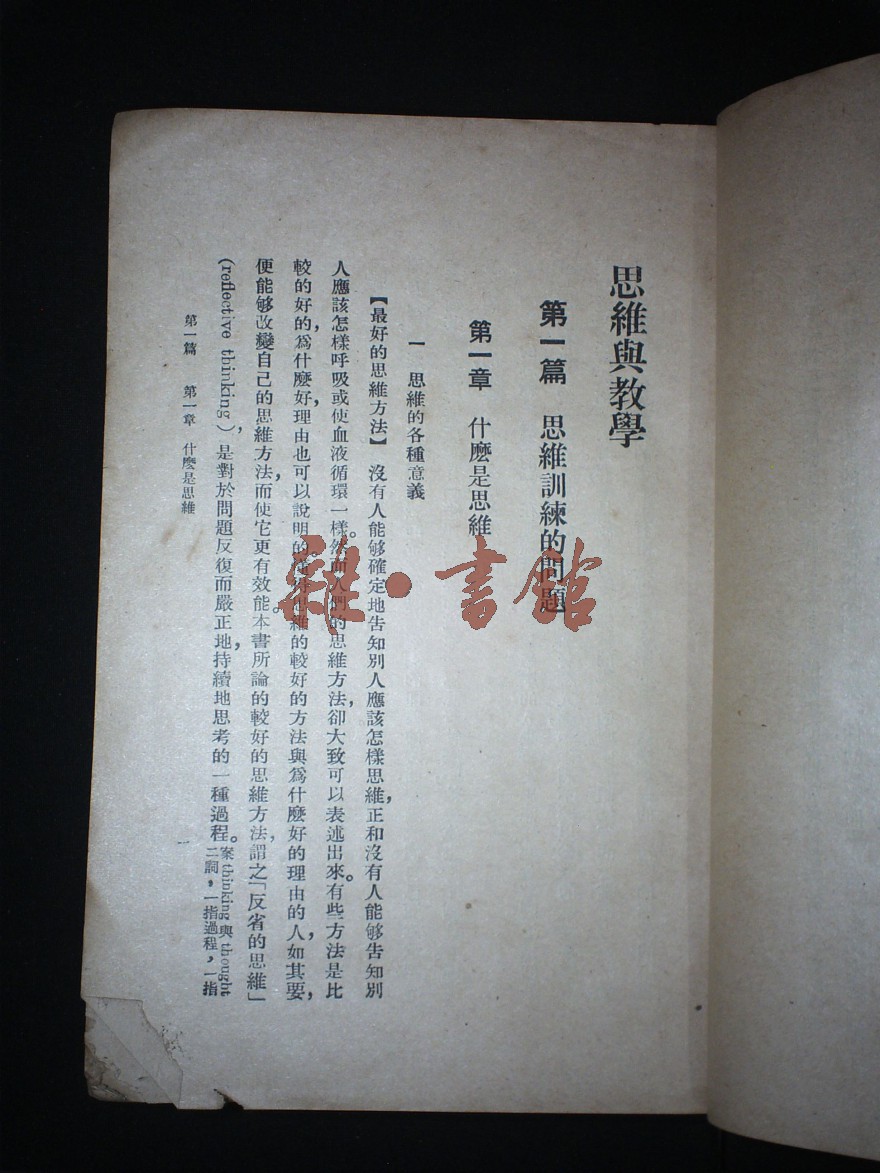 思維與教學
第一篇 思維訓練的問題
第一章 什麼是思維
一 思維的各種意義
【最好的思維方法】 沒有人能够確定地告知別人應該怎樣思維，正和沒有人能够告知別
人應該怎樣呼吸或使血液循環一樣。然而人們的思維方法，卻大致可以表述出來。有些方法是比
較的好的，爲什麼好，理由也可以說明的。懂得思維的較好的方法與爲什麼好的理由的人，如其要，
便能够改變自己的思維方法，而使它更有效能。本書所論的較好的思維方法，謂之「反省的思維」
(reflective thinking)，是對於問題反復而嚴正地，持續地思考的一種過程。案 thinking 與 thought
二詞，一指過程，一指
第一篇 第一章 什麼是思維
一
雜·書館